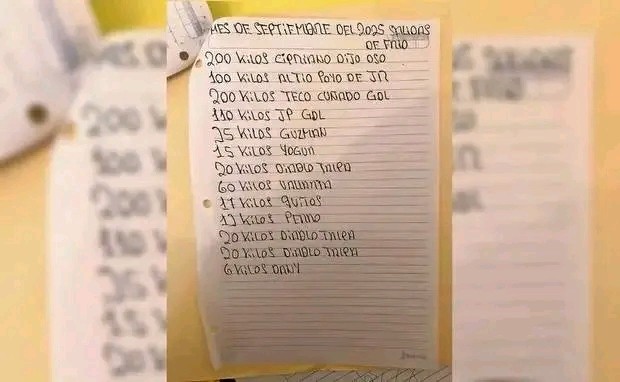 MES DE SEPTIEMBRE DEL 2025 SALIDAS
DE FRIO
200 KILOS CIPRIANO DIJO OSO
100 KILOS ALTIO POYO DE JR
200 KILOS TECO CUÑADO GDL
110 KILOS JP GDL
35 KILOS GUZMAN
15 KILOS YOGUR
20 KILOS DIABLO TRIPA
60 KILOS
17 KILOS QUITOS
13 KILOS PERRO
20 KILOS DIABLO TRIPA
20 KILOS DIABLO TRIPA
6 KILOS DANY